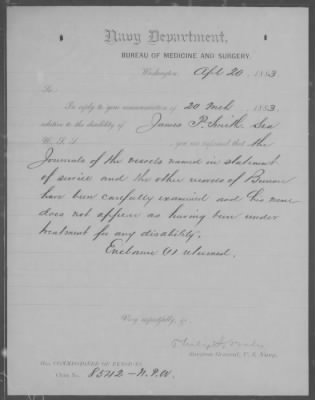 Navy Department,
BUREAU OF MEDICINE AND SURGERY,
Washington, Apl 20, 1883
Sir:
In reply to your communication of 20 Mch, 1883
relative to the disability of James P. Smith, Sea
U.S.S. , you are informed that the
Journals of the vessels named in statement
of service and the other records of Bureau
have been carefully examined and his name
does not appear as having been under
treatment for any disability.
Enclosure is returned.
Very respectfully, &c.
Surgeon General, U. S. Navy.
Hon. COMMISSIONER OF PENSIONS,
Claim No. 8542 - N.P.W.